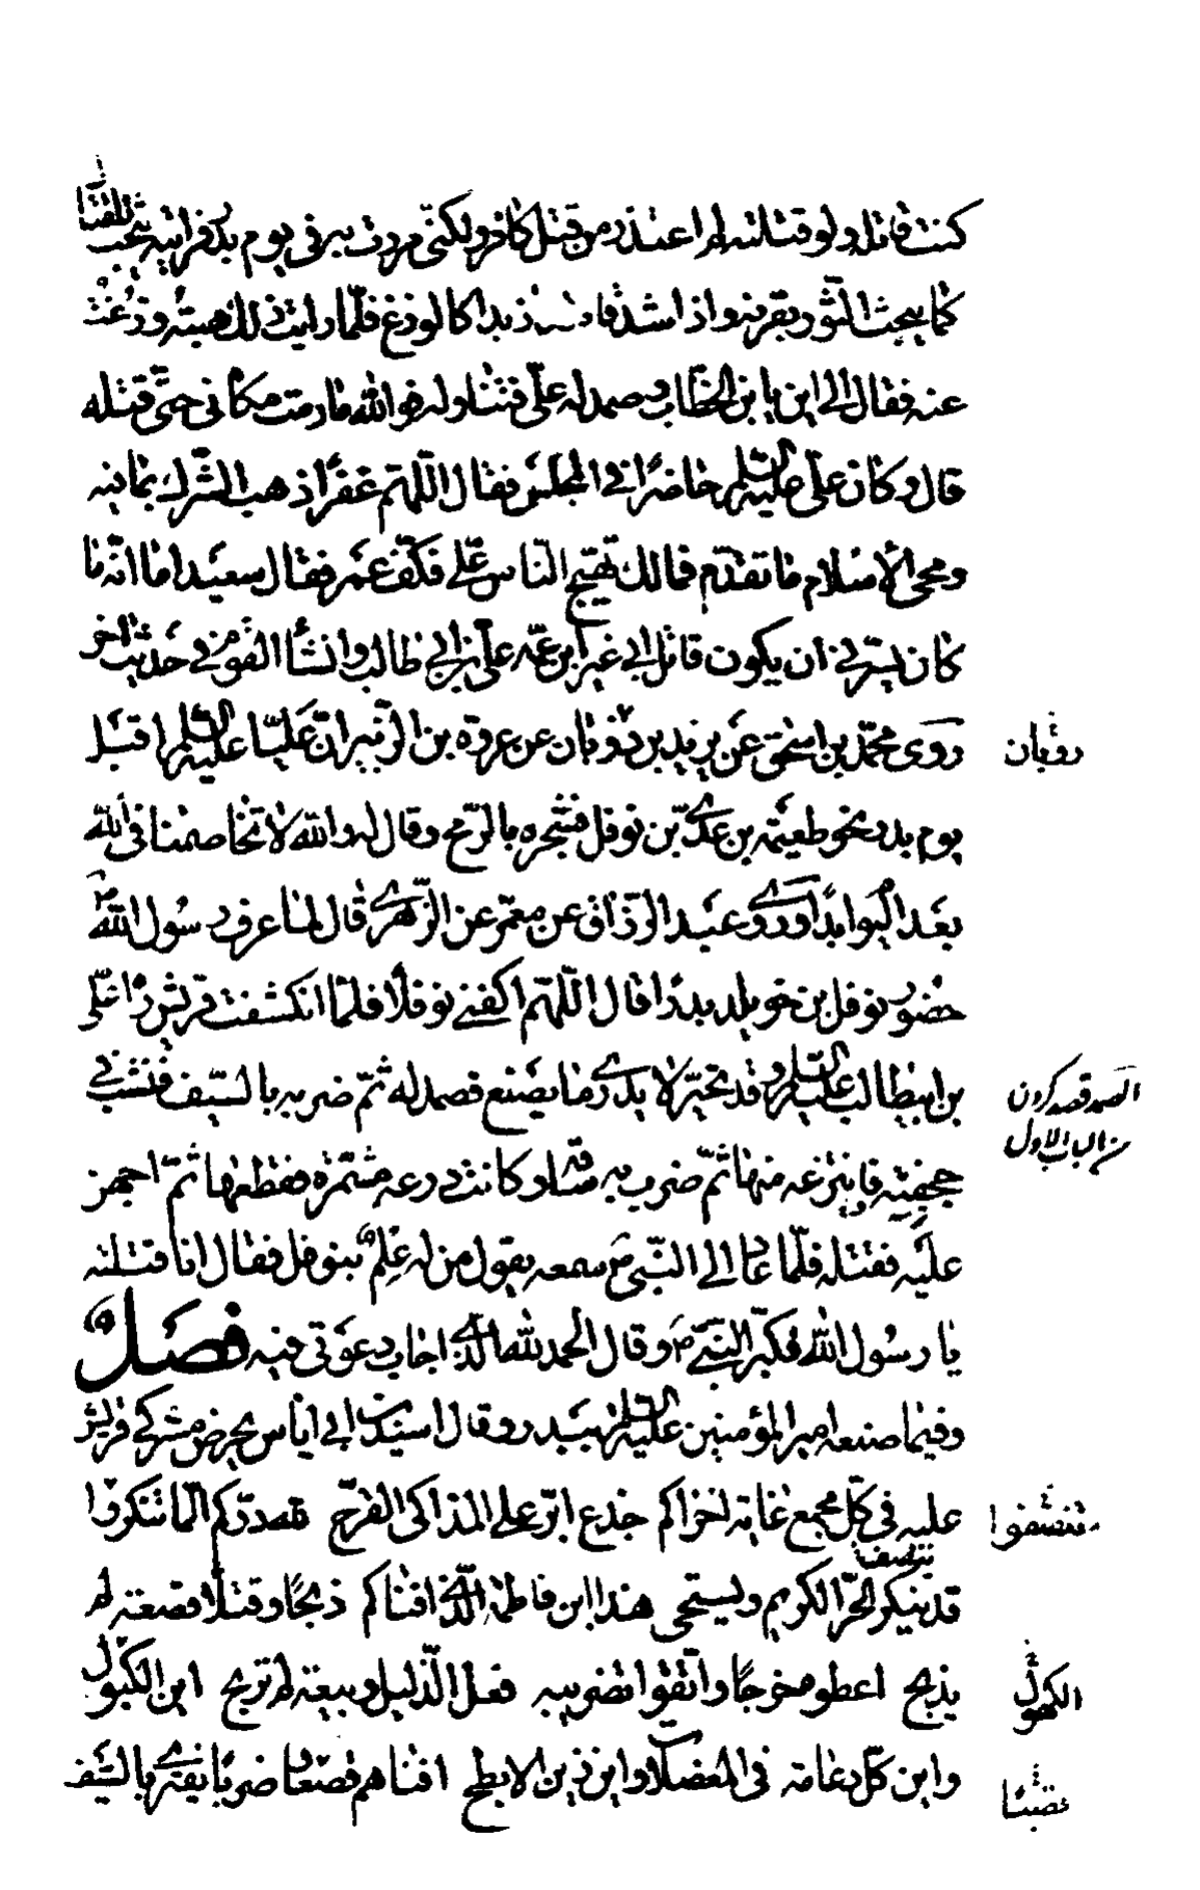 كنت قاتله ولو قتلته لم اعتذر من قتل كافر ولكني مررت به في يوم بدر فرايته يبحث للقتال
كما يبحث الثور بقرنه واذا شدقاه قد ازبدا كالوزغ فلما رايت ذلك هبته ورغت
عنه فقال الي اين يا بن الخطاب وصمد له علي فتناوله فو الله ما رمت مكاني حتى قتله
قال وكان علي عليه السلم حاضرا في المجلس فقال اللهم غفرا ذهب الشرك بما فيه
ومحى الاسلام ما تقدم فمالك تهيج الناس علي فكف عمر فقال سعيد اما انه ما
كان يسرني ان يكون قاتل ابي غير ابن عمه علي بن ابي طالب وانشأ القوم في حديث اخر
روى محمد بن اسحق عن يزيد بن رومان عن عروة بن الزبير ان عليا عليه السلم اقبل
يوم بدر نحو طعيمة بن عدي بن نوفل فشجره بالرمح وقال له والله لا تخاصمنا في الله
بعد اليوم ابدا وروى عبد الرزاق عن معمر عن الزهري قال لما عرف رسول الله ص
حضور نوفل بن خويلد بدرا قال اللهم اكفني نوفلا فلما انكشفت قريش راه علي
بن ابيطالب عليه السلم وقد تحير لا يدري ما يصنع فصمد له ثم ضربه بالسيف فنشب في
حجفته فانتزعه منها ثم ضرب به ساقه وكانت درعه مشمرة فقطعها ثم اجهز
عليه فقتله فلما عاد الى النبي ص سمعه يقول من له علم بنوفل فقال انا قتلته
يا رسول الله فكبر النبي ص وقال الحمد لله الذي اجاب دعوتي فيه فصل
وفيما صنعه امير المؤمنين عليه السلم ببدر وقال اسيد بن ابي اياس يحرض مشركي قريش
عليه في كل مجمع غاية اخزاكم جذع ابر على المذاكي القرح لله دركم الما تنكروا
قد ينكر الحر الكريم ويستحي هذا ابن فاطمة الذي افناكم ذبحا وقتلا قصعة لم
يذبح اعطوه خرجا واتقوا تضريبه فعل الذليل وبيعة لم تربح اين الكهول
واين كل دعامة في المعضلات واين زين الابطح افناهم قصعا وضربا يفتري بالسيف
رومان
الصمد قصد كردن
من الباب الاول
تنصفوا
تنصف
الكهول
قعصا